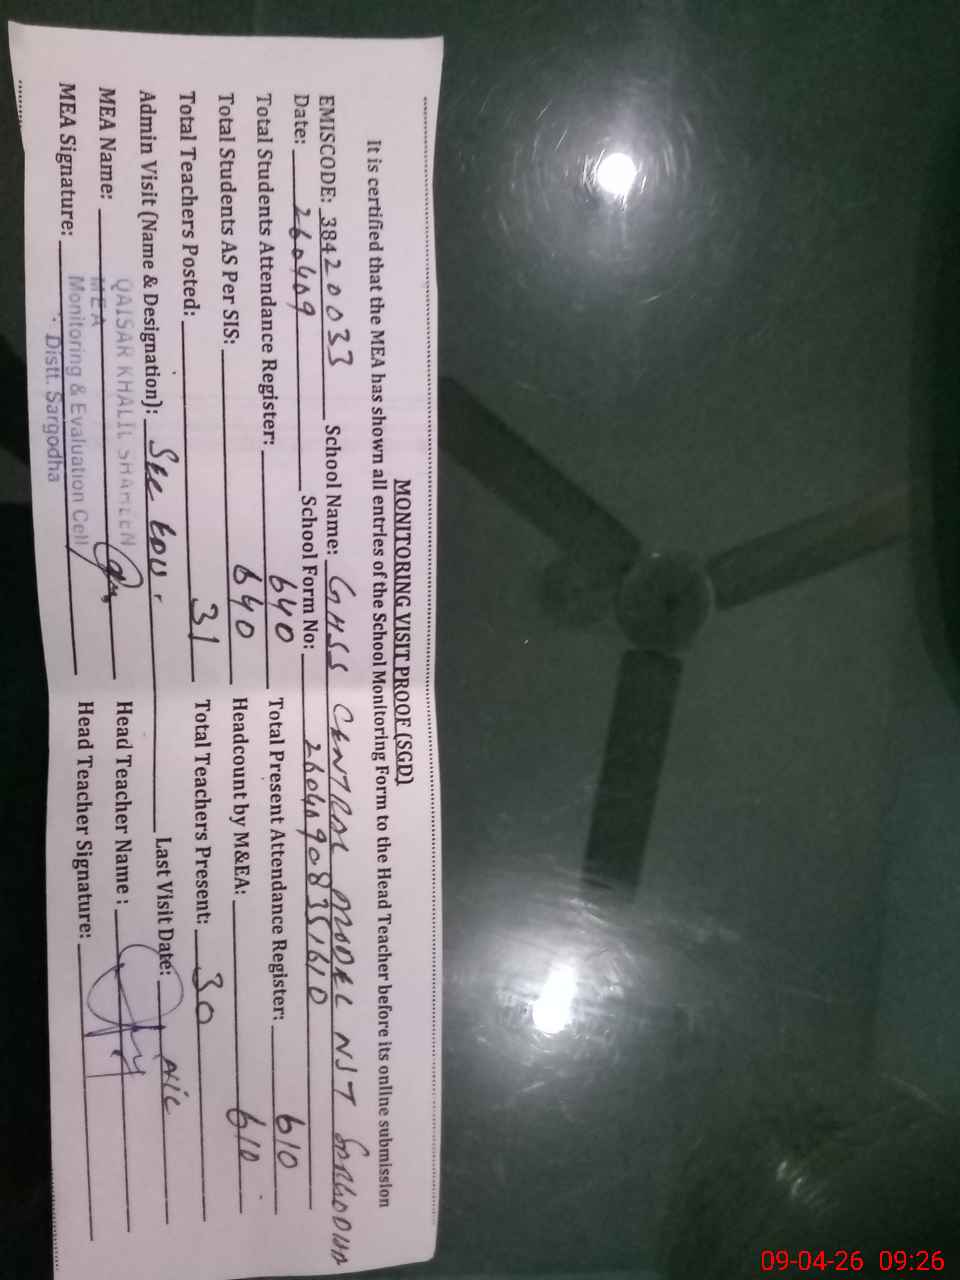 MONITORING VISIT PROOF (SGD)
It is certified that the MEA has shown all entries of the School Monitoring Form to the Head Teacher before its online submission
EMISCODE: 38420033 School Name: GHSS CENTRAL MODEL NST SARGODHA
Date: 260409 School Form No: 26040908351610
Total Students Attendance Register: 640 Total Present Attendance Register: 610
Total Students AS Per SIS: 640 Headcount by M&EA: 610
Total Teachers Posted: 31 Total Teachers Present: 30
Admin Visit (Name & Designation): SEE EDU. Last Visit Date: NIL
MEA Name: QAISAR KHALIL SHAHEEN Head Teacher Name :
MEA
MEA Signature: Monitoring & Evaluation Cell Head Teacher Signature:
Distt. Sargodha
09-04-26 09:26